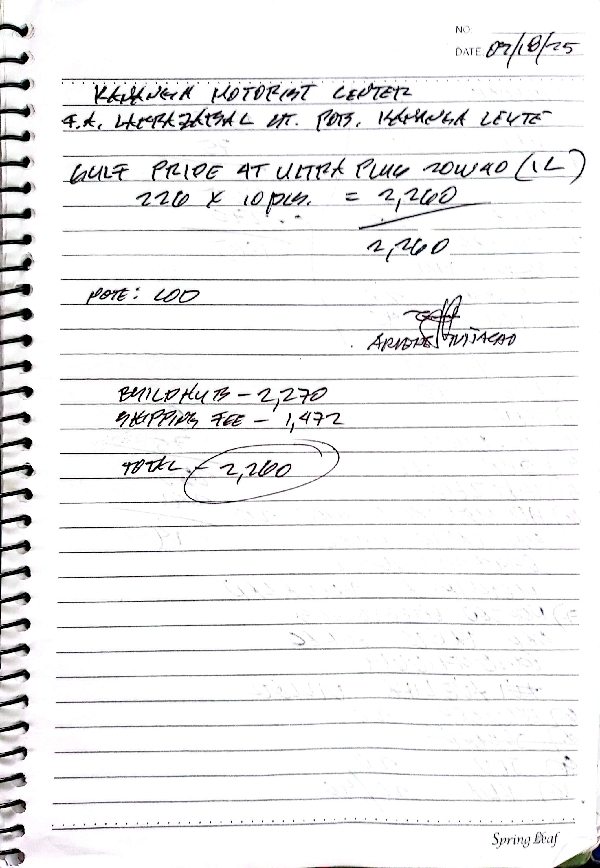 NO.
DATE 07/18/25
KANANGA MOTORIST CENTER
F.A. LARRAZABAL ST. POB. KANANGA LEYTE
GULF PRIDE AT ULTRA PLUS 20W40 (1L)
226 X 10 pcs. = 2,260
2,260
NOTE: COD
ARVENE
- 2,270
SHIPPING FEE - 1,472
TOTAL - 2,260
Spring Leaf